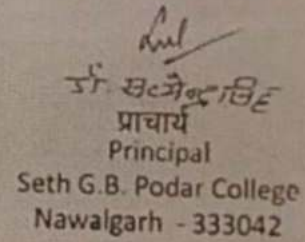 डॉ. सत्येन्द्र सिंह
प्राचार्य
Principal
Seth G.B. Podar College
Nawalgarh - 333042